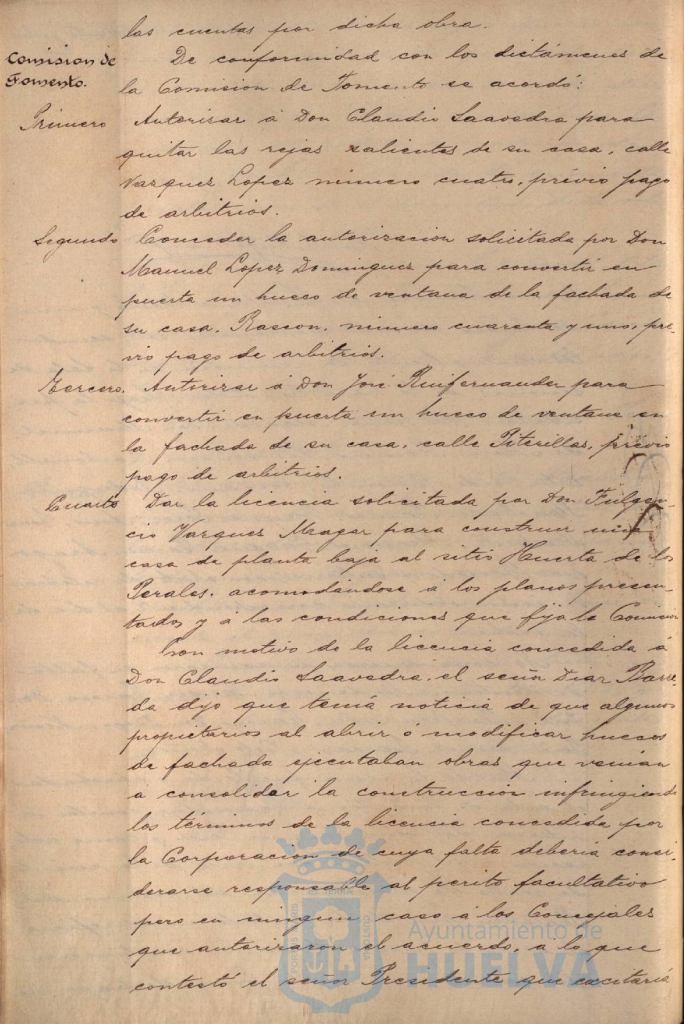 las cuentas por dicha obra.
Comision de
Fomento.
De conformidad con los dictámenes de
la Comision de Fomento se acordó:
Primero Autorizar á Don Claudio Saavedra para
quitar las rejas salientes de su casa, calle
Vazquez Lopez número cuatro, prévio pago
de arbitrios.
Segundo Conceder la autorizacion solicitada por Don
Manuel Lopez Dominguez para convertir en
puerta un hueco de ventana de la fachada de
su casa, Rascon, número cuarenta y uno, pre-
vio pago de arbitrios.
Tercero. Autorizar á Don José Ruifernandez para
convertir en puerta un hueco de ventana en
la fachada de su casa, calle Piterillas, prévio
pago de arbitrios.
Cuarto Dar la licencia solicitada por Don Fulgen-
cio Vazquez Meagar para construir una
casa de planta baja al sitio Huerta de los
Perales, acomodándose á los planos presen-
tados y á las condiciones que fija la Comision
Con motivo de la licencia concedida á
Don Claudio Saavedra, el señor Diaz Barre-
da dijo que tenía noticia de que algunos
propietarios al abrir ó modificar huecos
de fachada ejecutaban obras que venian
a consolidar la construccion infringiendo
los términos de la licencia concedida por
la Corporacion de cuya falta debería consi-
derarse responsable al perito facultativo
pero en ningun caso á los Concejales
que autorizaron el acuerdo, a lo que
contestó el señor Presidente que excitaría
Ayuntamiento de
HUELVA